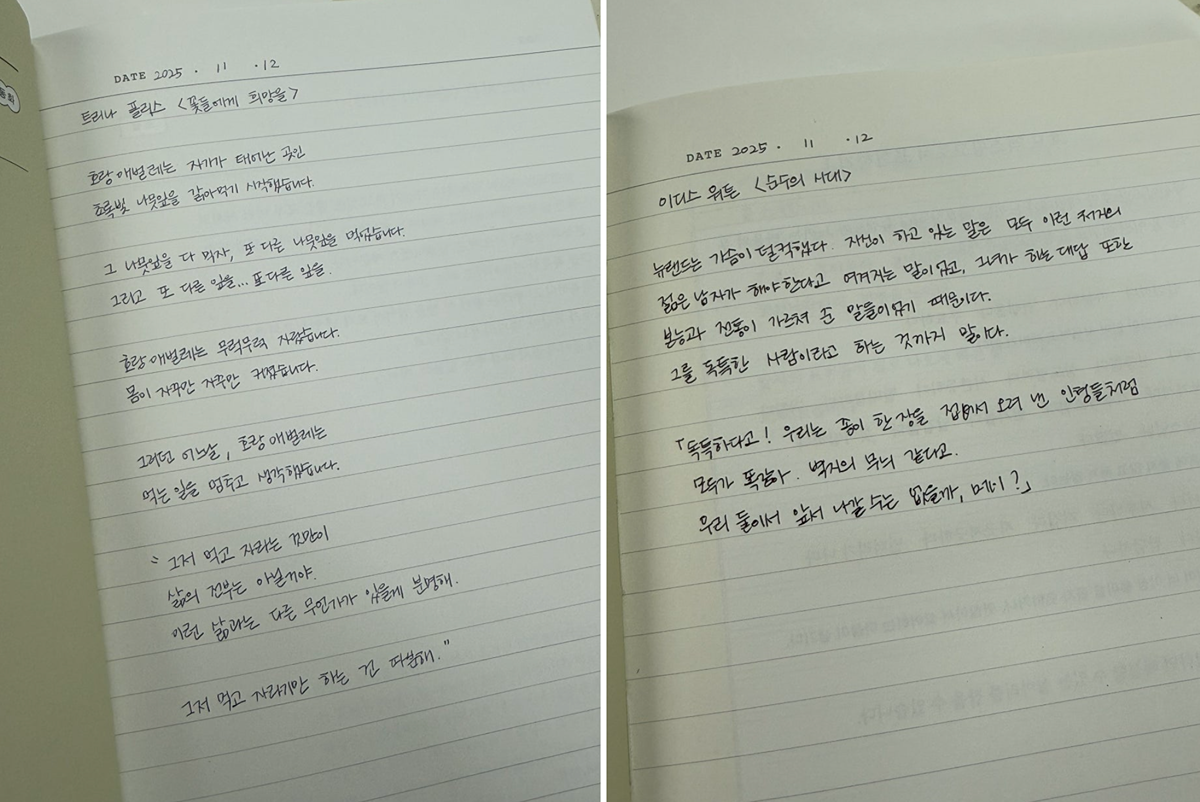 DATE 2025 . 11 . 12
트리나 폴러스 <꽃들에게 희망을>
호랑 애벌레는 자기가 태어난 곳인
초록빛 나뭇잎을 갉아먹기 시작했습니다.
그 나뭇잎을 다 먹자, 또 다른 나뭇잎을 먹었습니다.
그리고 또 다른 잎을... 또 다른 잎을.
호랑 애벌레는 무럭무럭 자랐습니다.
몸이 자꾸만 자꾸만 커졌습니다.
그러던 어느날, 호랑 애벌레는
먹는 일을 멈추고 생각했습니다.
"그저 먹고 자라는 것만이
삶의 전부는 아닐거야.
이런 삶과는 다른 무언가가 있을게 분명해.
그저 먹고 자라기만 하는 건 따분해."
DATE 2025 . 11 . 12
이디스 워튼 <순수의 시대>
뉴랜드는 가슴이 덜컥했다. 자신이 하고 있는 말은 모두 이런 처지의
젊은 남자가 해야 한다고 여겨지는 말이었고, 그녀가 하는 대답 또한
본능과 전통이 가르쳐 준 말들이었기 때문이다.
그를 독특한 사람이라고 하는 것까지 말이다.
「독특하다고! 우리는 종이 한 장을 접어서 오려 낸 인형들처럼
모두가 똑같아. 벽지의 무늬 같다고.
우리 둘이서 앞서 나갈 수는 없을까, 메이?」